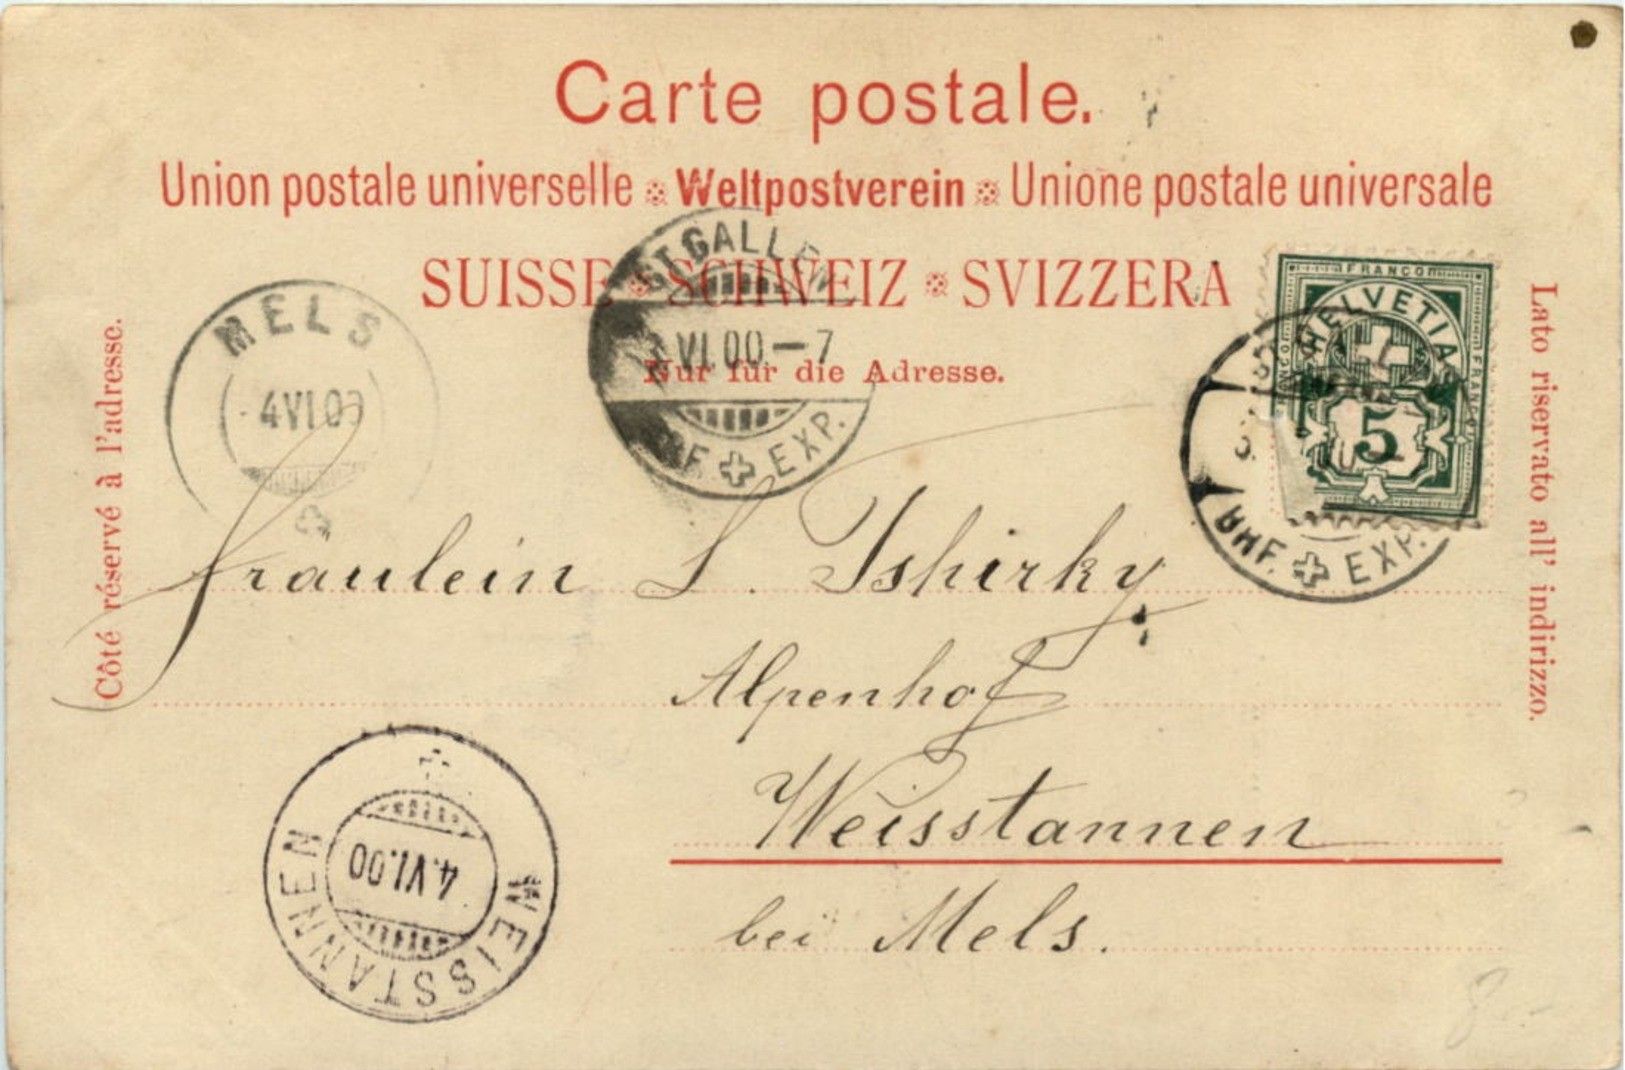 Carte postale.
Union postale universelle Weltpostverein Unione postale universale
SUISSE SCHWEIZ SVIZZERA
Nur für die Adresse.
Côté réservé à l'adresse.
Lato riservato all' indirizzo.
MELS
4 VI 00
ST. GALLEN
VI.00.–7
BHF. EXP.
FRANCO
HELVETIA
FRANCO
FRANCO
5
BHF. EXP.
Fräulein L. Ishirky
Alpenhof
Weisstannen
bei Mels.
WEISSTANNEN
4.VI.00